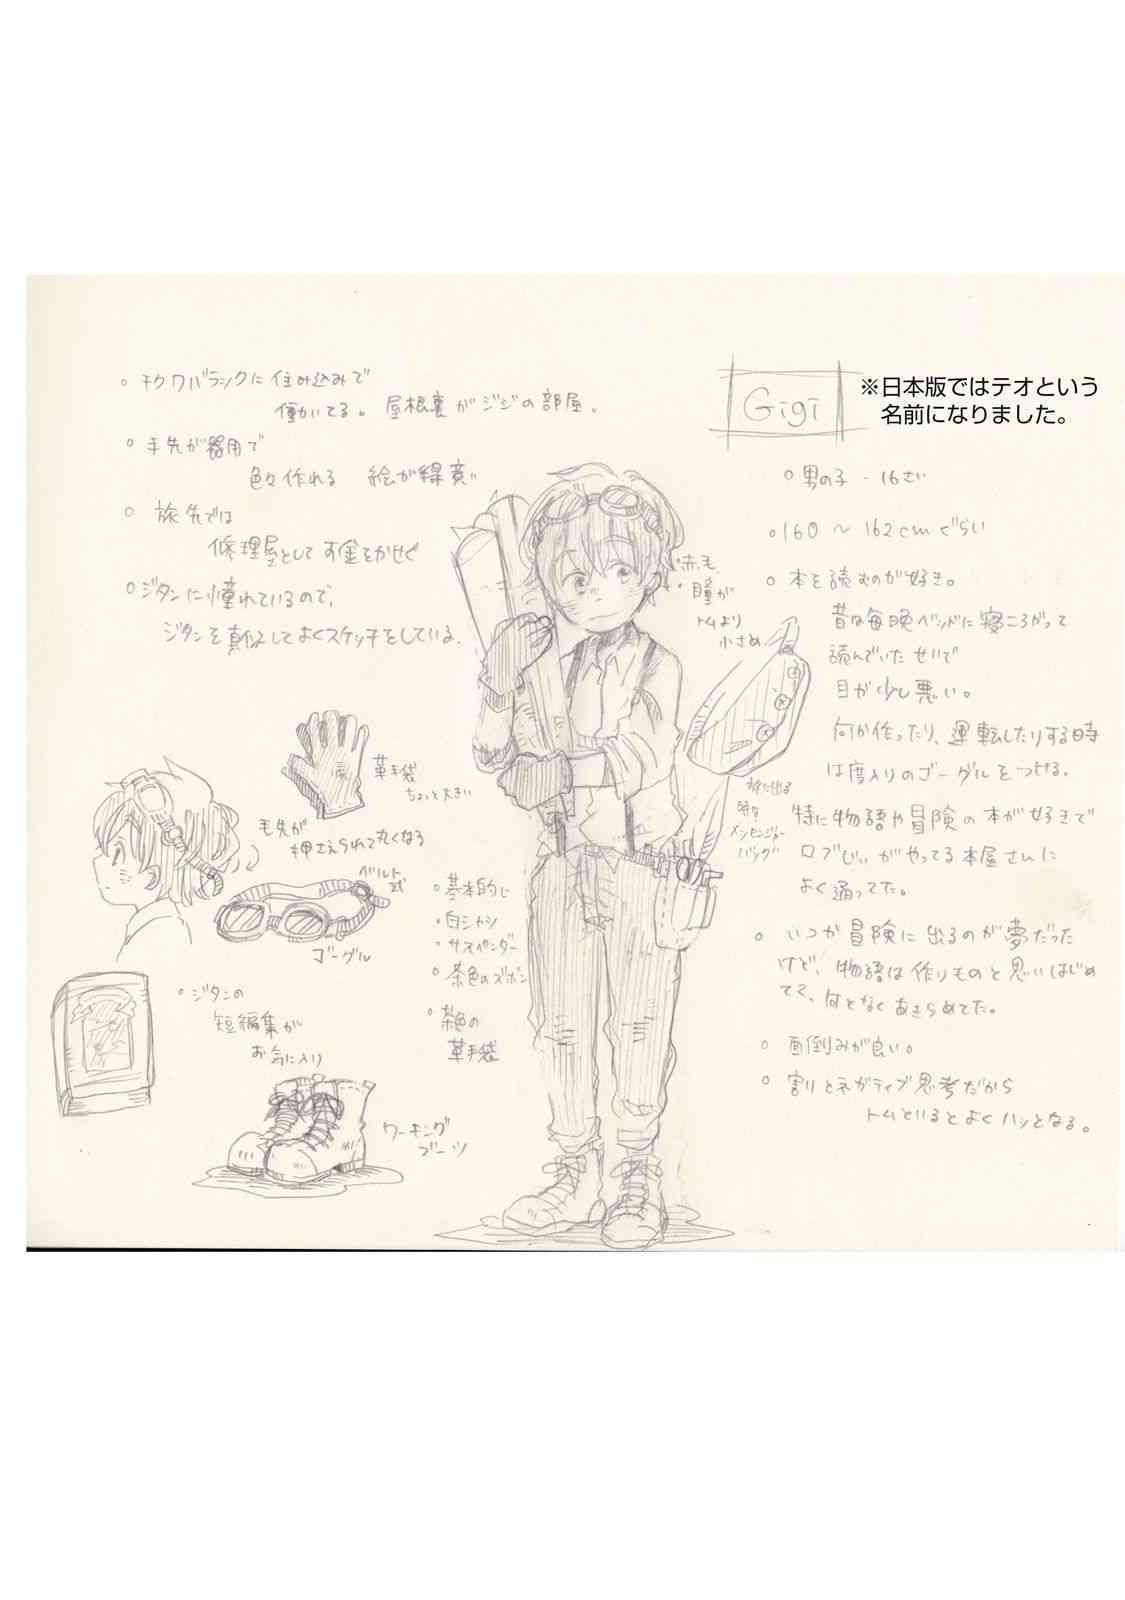 Gigi
※日本版ではテオという
名前になりました。
○ チクワバラックに住み込みで
働いてる。屋根裏がジジの部屋。
○ 手先が器用で
色々作れる 絵が得意
○ 旅先では
修理屋としてお金をかせぐ
○ ジタンに憧れているので、
ジタンを真似してよくスケッチをしている。
○ 男の子 - 16さい
○ 160 〜 162cmぐらい
・赤毛
・瞳が
トムより
小さめ
○ 本を読むのが好き。
昔は毎晩ベッドに寝ころがって
読んでいたせいで
目が少し悪い。
何か作ったり、運転したりする時
は度入りのゴーグルをつける。
特に物語や冒険の本が好きで
ロブじいがやってる本屋さんに
よく通ってた。
○ いつか冒険に出るのが夢だった
けど、物語は作りものと思いはじめ
てて、何となくあきらめてた。
○ 面倒みが良い。
○ 割とネガティブ思考だから
トムといるとよくハッとなる。
旅に出る
時は
メッセンジャー
バッグ
革手袋
ちょっと大きい
毛先が
押さえられて丸くなる
ベルト式
ゴーグル
○ 基本的に
・白シャツ
・サスペンダー
○ 茶色のズボン
○ 茶色の
革手袋
○ ジタンの
短編集が
お気に入り
ワーキング
ブーツ